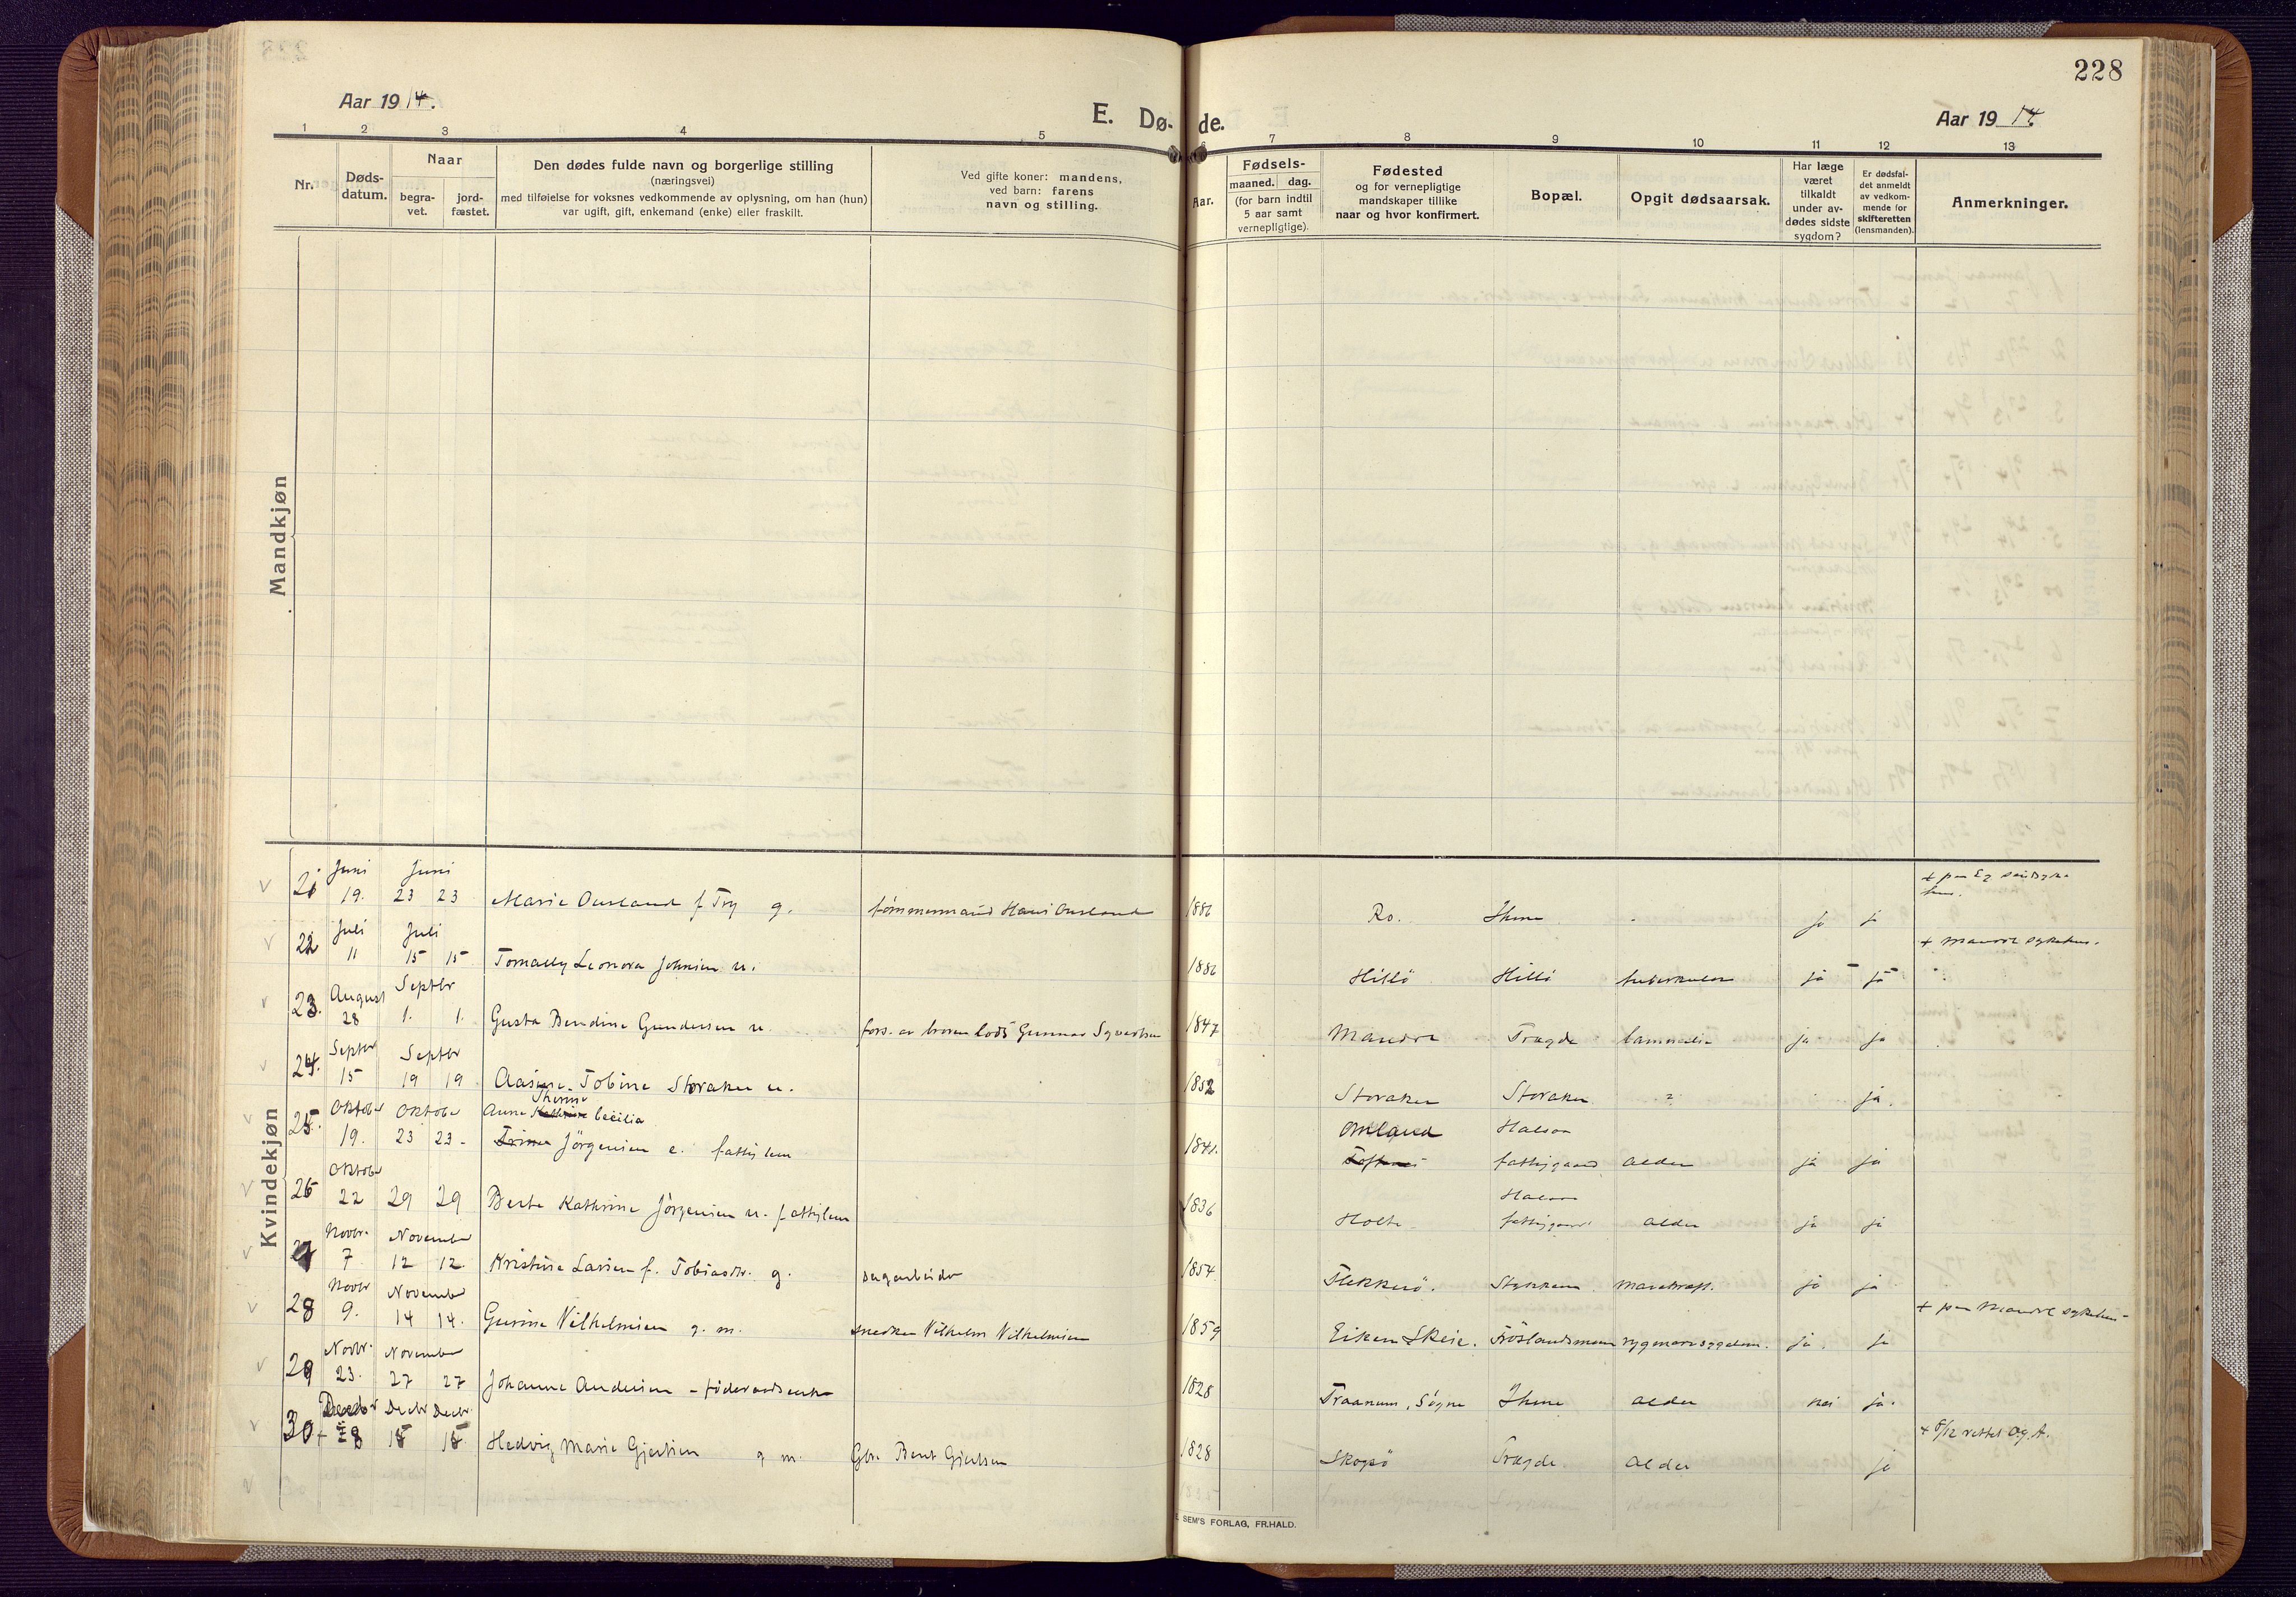 228
Aar 1914.
E. Dø-de.
Aar 1914
1 2 3 4 5 7 8 9 10 11 12 13
Nr.
Døds-
datum.
Naar
begra-
vet.
jord-
fæstet.
Den dødes fulde navn og borgerlige stilling
(næringsvei)
med tilføielse for voksnes vedkommende av oplysning, om han (hun)
var ugift, gift, enkemand (enke) eller fraskilt.
Ved gifte koner: mandens,
ved barn: farens
navn og stilling.
Aar.
Fødsels-
maaned. dag.
(for barn indtil
5 aar samt
vernepligtige).
Fødested
og for vernepligtige
mandskaper tillike
naar og hvor konfirmert.
Bopæl.
Opgit dødsaarsak.
Har læge
været
tilkaldt
under av-
dødes sidste
sygdom?
Er dødsfal-
det anmeldt
av vedkom-
mende for
skifteretten
(lensmanden).
Anmerkninger.
Mandkjøn
Kvindekjøn
Juni Juni
21 19. 23 23 Marie Ousland f. Try g. tømmermand Hans Ousland 1886 Ro. Ihme ja ja
Juli Juli + Mandal sykehus.
22 11 15 15 Leonora Johnsen u. 1886 Hillö Hillö tuberkulose ja ja
August Septbr
23. 28 1. 1. Gusta Bendine Gundersen u. fors. av broren lods Gunnar Syvertsen 1847 Mandal Tregde ja ja
Septbr Septbr
24. 15 19 19 Tobine Storaker u. 1852 Storaker Storaker ? ja.
Oktober Oktober Anne Kathrine Therine Cecilia Omland Halsaa
25. 19. 23 23. Trine Jörgensen e. fattiglem 1841. fattiggaard alder ja ja
Oktober Halsaa
26 22 29 29 Berte Kathrine Jörgensen u. fattiglem 1836 Holte fattiggaard alder ja ja
Novbr. November
27 7 12 12. Kristine Larsen f. Tobiasdtr. g. sagarbeider 1854 Flekkerö. ja ja
Novbr November + paa Mandal sykehus
28 9. 14 14. Gurine Vilhelmsen g. m. snedker Vilhelm Vilhelmsen 1859 Eiken Skeie. Fröslandsmoen rygmarvssygdom. ja. ja
Novbr. November
29 23. 27 27 Johanne Andersen - föderaadsenke 1828 Traanum, Søgne Ihme alder nei ja.
Decbr Decbr Decbr. + 8/12 rettet O.g.A.
30 8 15 15. Hedvig Marie Gjertsen g m. Gbr. Bent Gjertsen 1828 Skogsö Tregde alder ja
E. SEM'S FORLAG, FR.HALD.